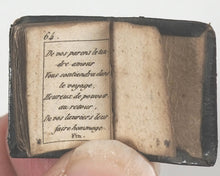 64.
De vos parens le ten
dre amour
Vous soutiendra dans
le voyage,
Heureux de pouvoir
au retour,
De vos lauriers leur
faire hommage.
Fin.